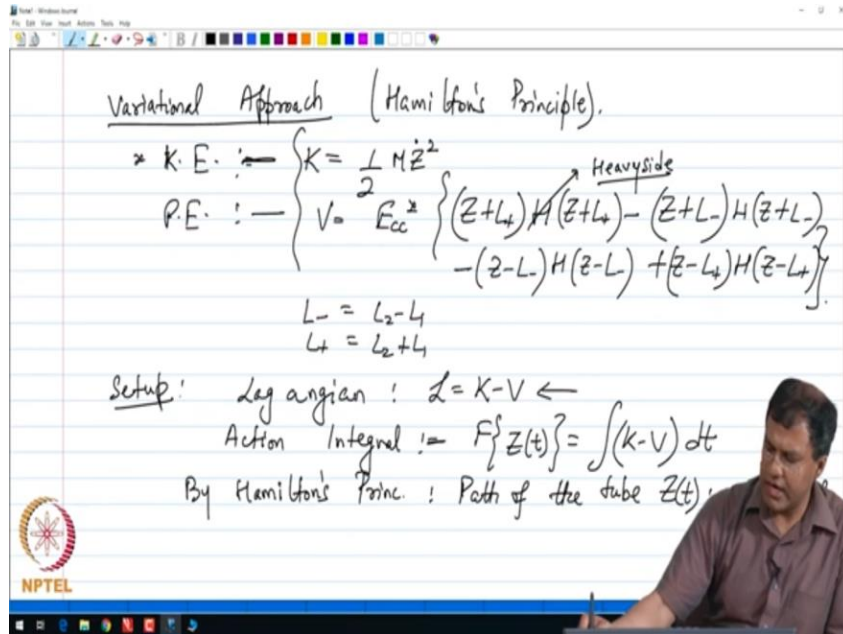 Note1 - Windows Journal
File Edit View Insert Actions Tools Help
Variational Approach (Hamilton's Principle).
* K.E. :— K = 1/2 MŻ²
Heavyside
P.E. :— V = Ecc* {(Z+L+)H(Z+L+) - (Z+L-)H(Z+L-)
-(Z-L-)H(Z-L-) +(Z-L+)H(Z-L+)}.
L- = L2-L1
L+ = L2+L1
Setup: Lagangian : L = K-V ←
Action Integral :- F{Z(t)} = ∫(K-V) dt
By Hamilton's Princ. : Path of the tube Z(t):
NPTEL